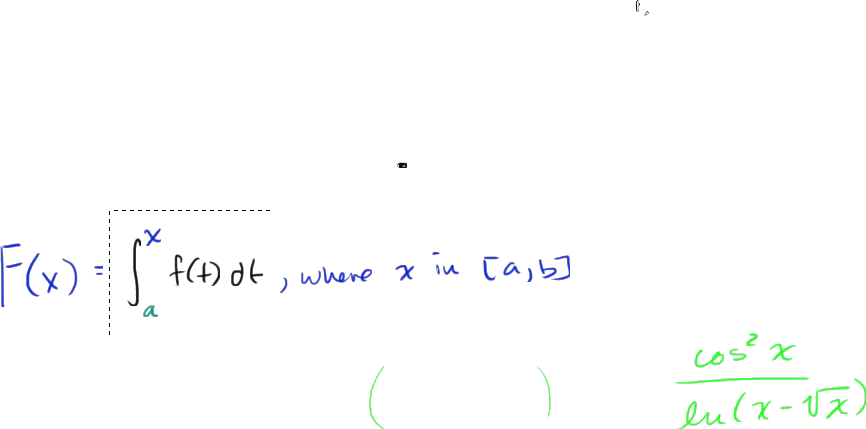 F(x) = ∫ₐˣ f(t) dt , where x in [a,b]
(          )     cos² x / ln(x-√x)